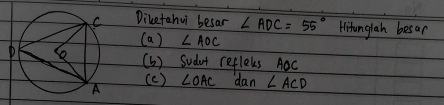 C
D
O
A
Diketahui besar ∠ ADC = 55° Hitunglah besar
(a) ∠ AOC
(b) Sudut refleks AOC
(c) ∠OAC dan ∠ ACD